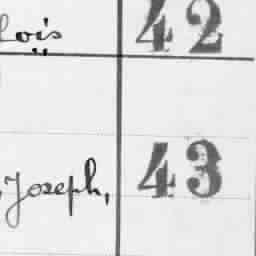 lois 42
Joseph, 43